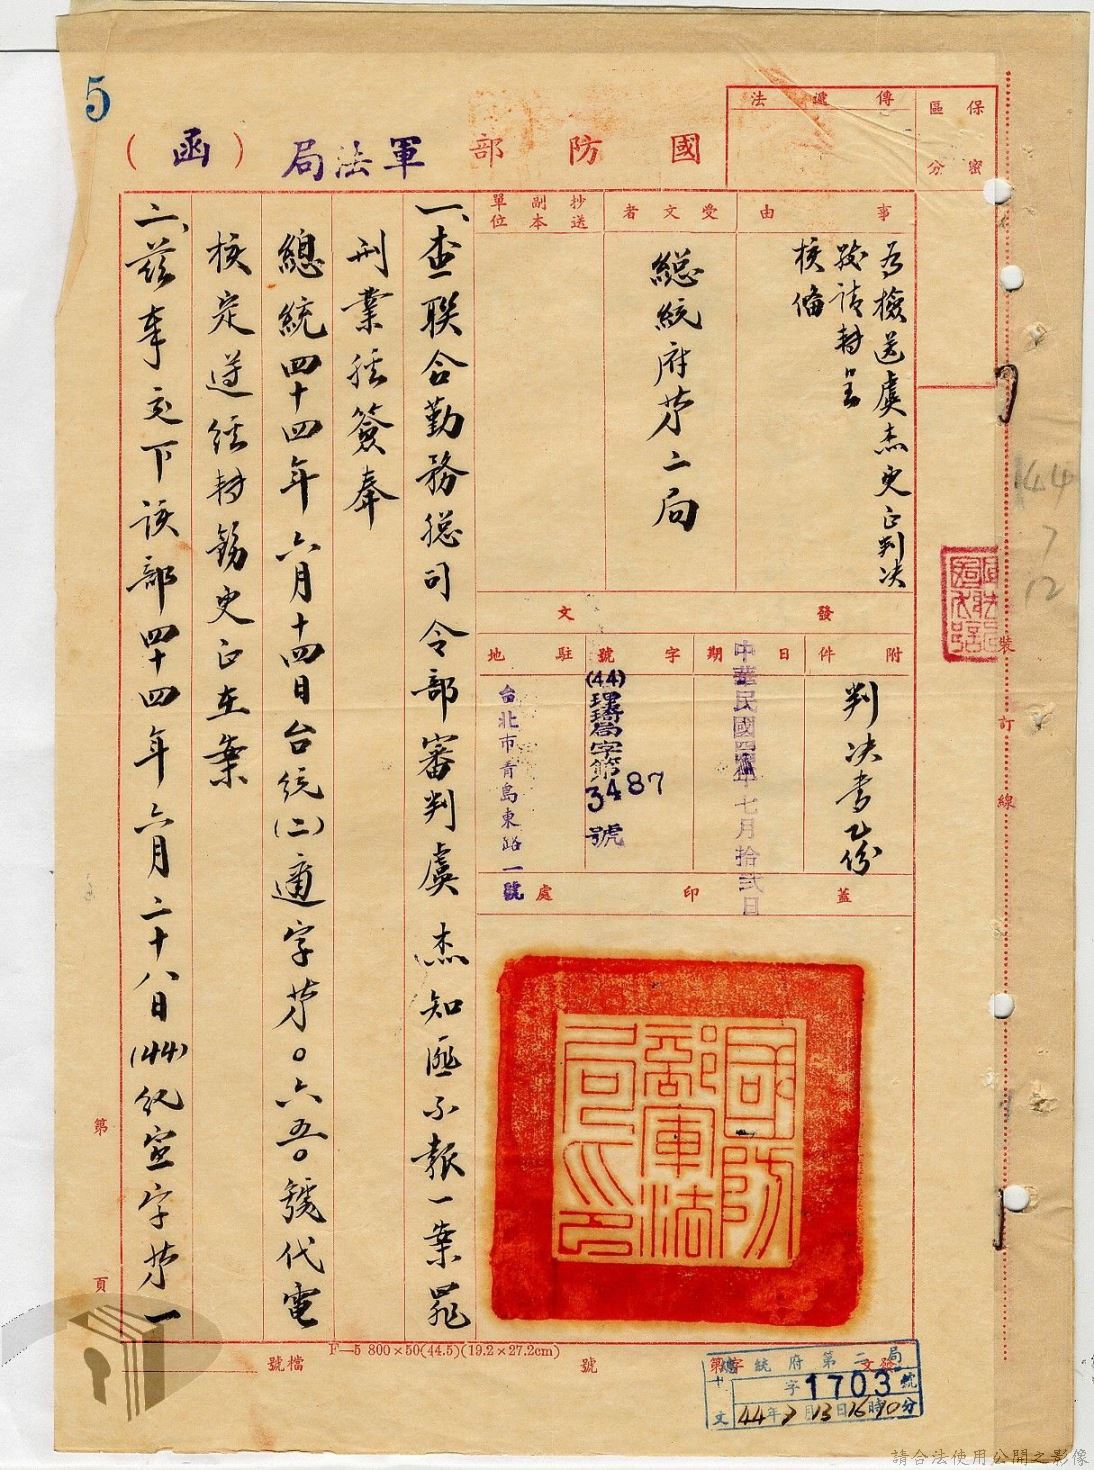 5
國防部軍法局（函）
保密區分
傳遞法
事由
為檢送虞杰更正判決
致請轉呈
核備
受文者
總統府第二局
抄送副本單位
發文
附件
判決書乙份
日期
中華民國四四年七月拾弍日
字號
(44)理瑨局字第3487號
駐地
台北市青島東路一號
蓋印處
國防部軍法局印
一、查聯合勤務總司令部審判虞杰知匪不報一案罪
刑業経簽奉
總統四十四年六月十四日台統(二)適字第〇六五〇號代電
核定遵経轉飭更正在案
二、茲奉交下該部四十四年六月二十八日(44)紀宣字第一
裝訂線
44
7
12
第
頁
F—5 800×50(44.5)(19.2×27.2cm)
檔號
號
總統府第二局
字1703號
44年7月13日16時10分
請合法使用公開之影像